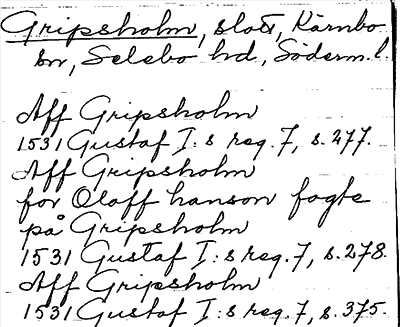 Gripsholm, slott, Kärnbo
sn, Selebo hd, Söderm. l.
Aff Gripsholm
1531 Gustaf I:s reg. 7, s. 277.
Aff Gripsholm
for Oloff hanson fogte
på Gripsholm
1531 Gustaf I:s reg. 7, s. 278.
Aff Gripsholm
1531 Gustaf I:s reg. 7, s. 375.